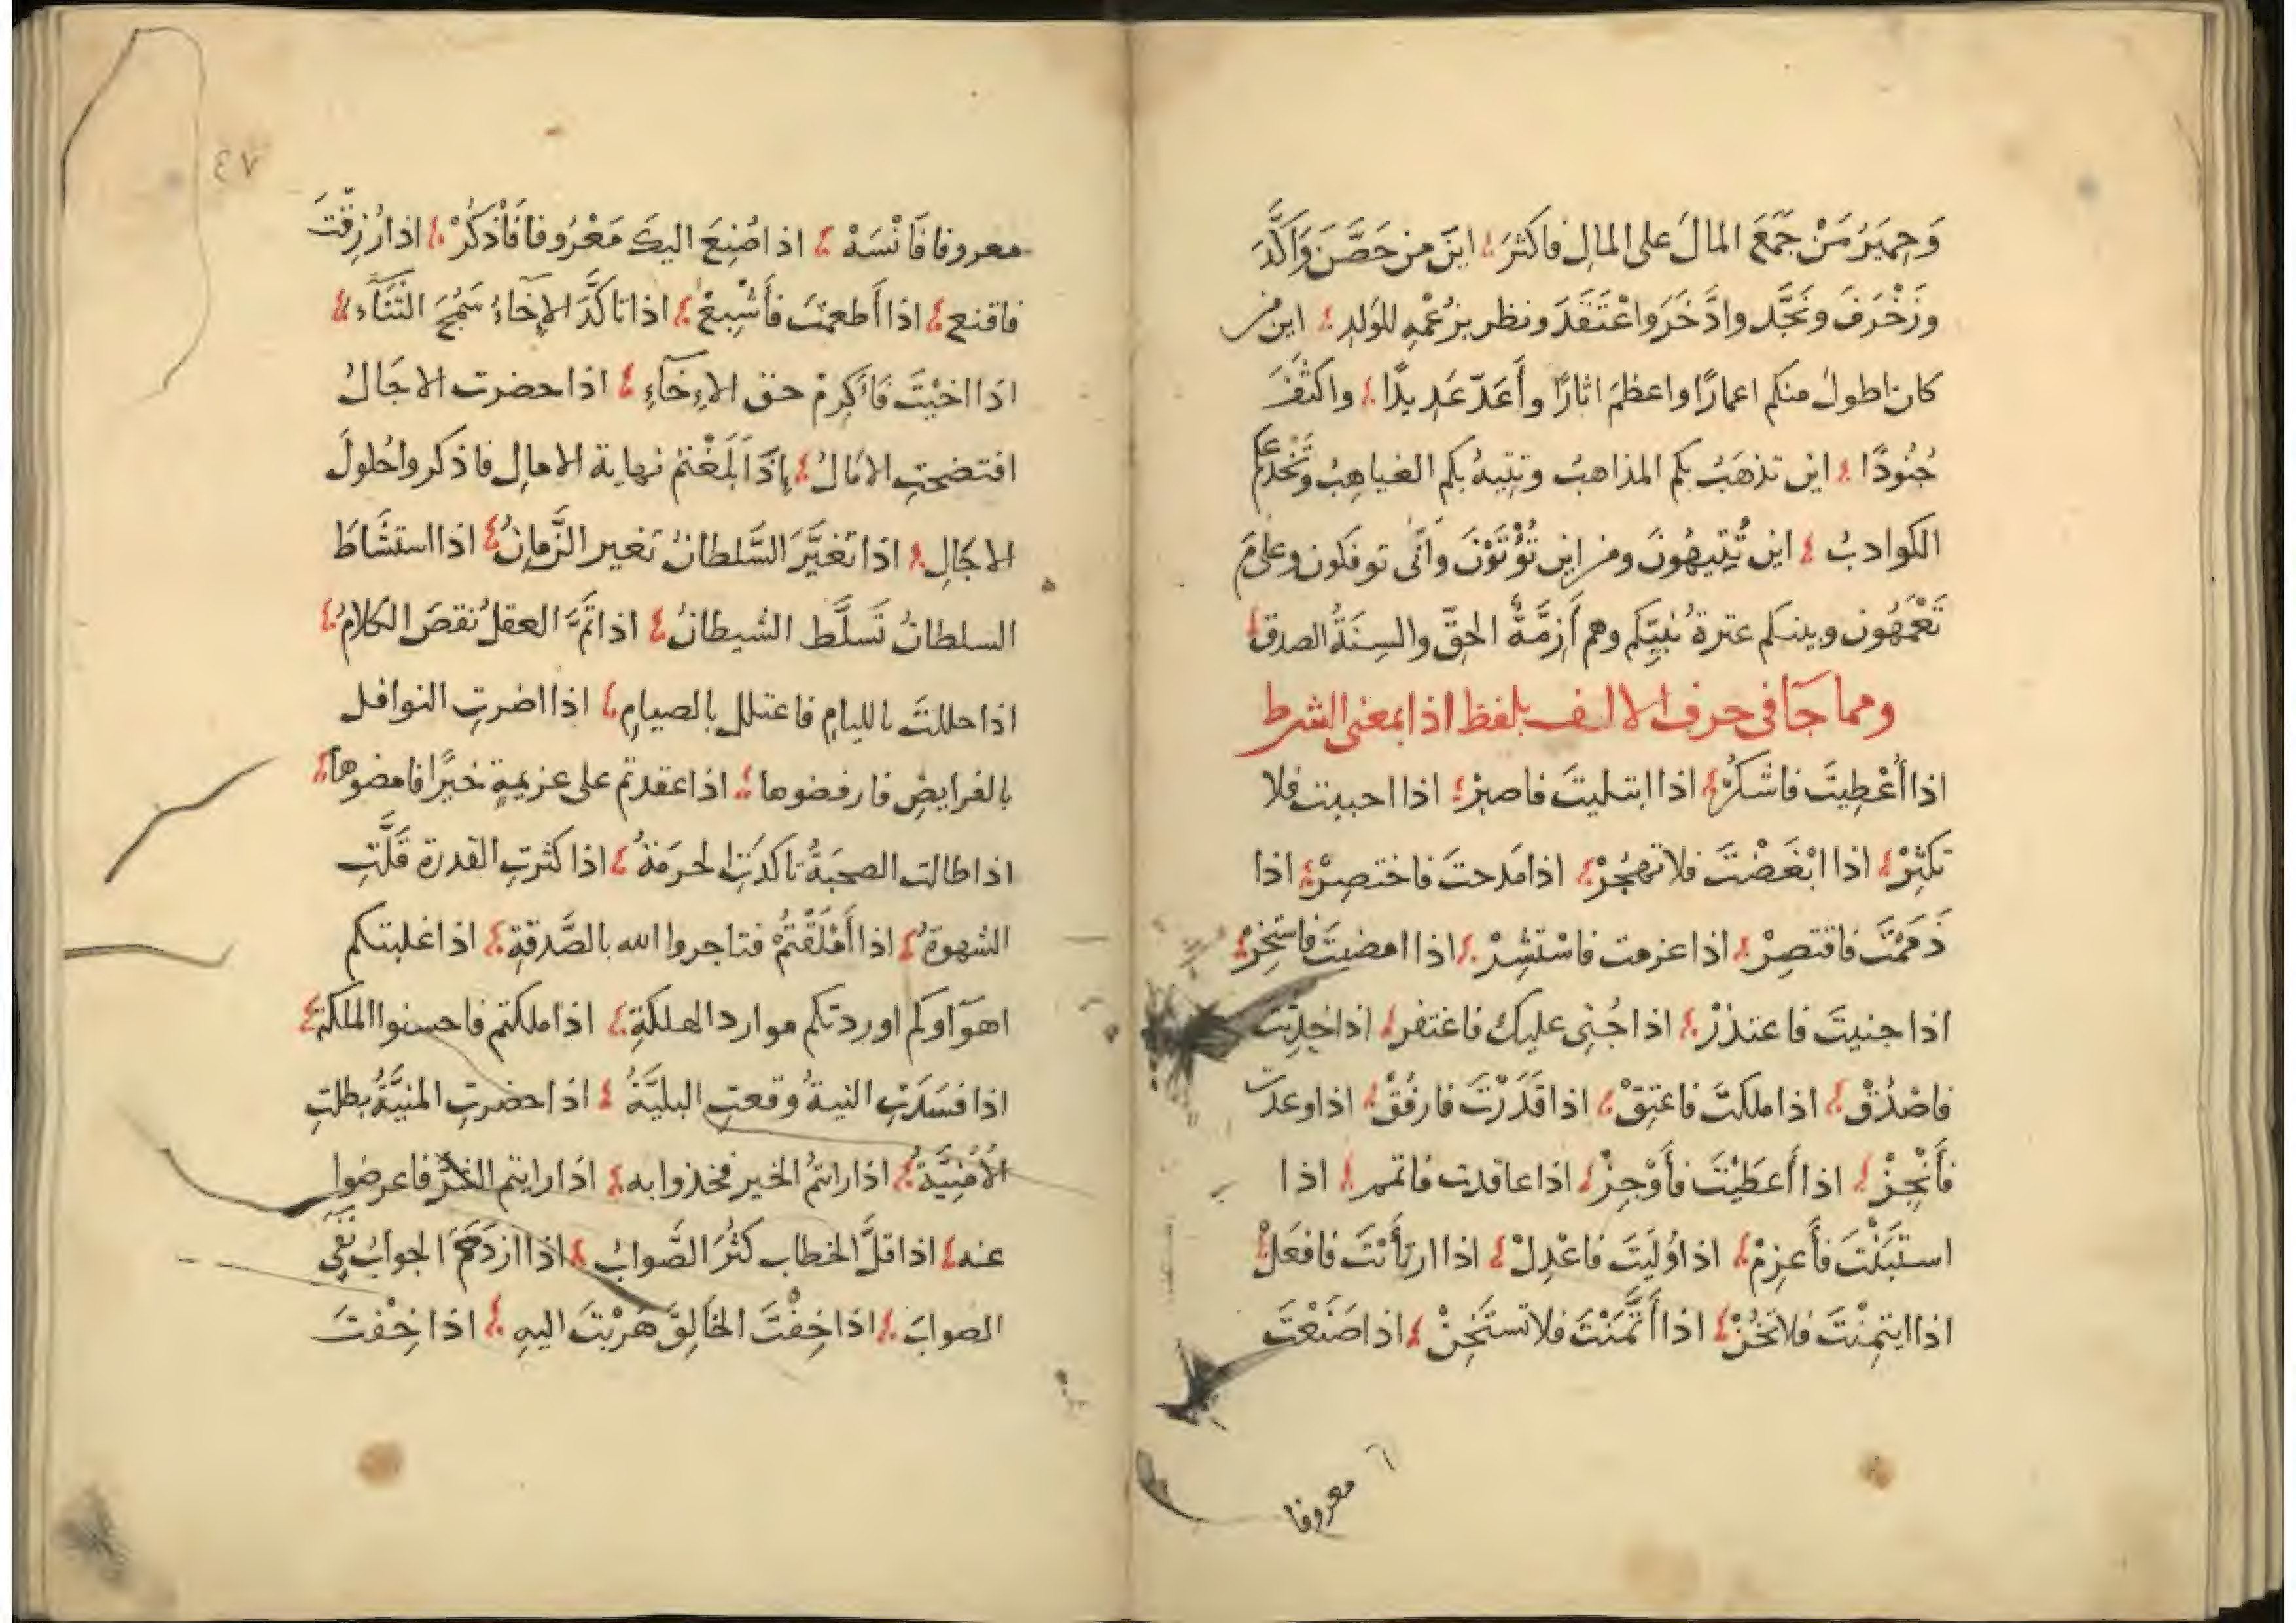 وَحِمْيَرُ مَنْ جَمَعَ المالَ على المالِ فاكثرَ اينَ من حَصَّنَ وَاَكَّدَ
وزَخْرَفَ ونَجَّد وادَّخَرَ واعْتَقَدَ ونظر بزعْمِهِ للوَلدِ اين من
كان اطولَ منكم اعمارًا واعظمَ اثارًا وأَعَدّ عَدِيدًا واكثفَ
جُنُودًا اين تذهَبُ بكم المذاهبُ وتتِيهُ بكم الغياهِبُ وتَخْدَعكم
الكواذبُ اين تُتِيهُونَ ومن اين تُؤْتَوْنَ وَاَنَّى توفكون وعلىمَ
تَعْمَهُون وبينكم عترة نَبِيِّكم وهم أَزِمَّةُ الحقّ والسِنَةُ الصدق
ومما جَا في حرف الالف بلفظ اذا بمعنى الشرط
اذا أُعْطِيتَ فاشكُرْ اذا ابتليتَ فاصبِرْ اذا احببت فلا
تكثِرْ اذا ابْغَضْتَ فلا تهجُرْ اذا مَدحتَ فاختصِرْ اذا
ذَمَمْتَ فاقتصِرْ اذا عزمت فاسْتَشِرْ اذا امضيتَ فاستَخِرْ
اذا جنيتَ فاعتذرْ اذا جُنِى عليك فاغتفر اذا حُدِّثت
فاصْدُقْ اذا ملكتَ فاعتِقْ اذا قَدَرْتَ فارفُقْ اذا وعدتَ
فأَنْجِزْ اذا أَعطَيْتَ فأَوْجِزْ اذا عاقدت فاتمم اذا
استَبَنْتَ فأعزِمْ اذا وُلِيتَ فاعْدِلْ اذا ارتأَيْتَ فافعَلْ
اذا ايتمِنْتَ فلا تَخُنْ اذا أَتَّمَنْتَ فلا تستَخِنْ اذا صَنَعْتَ
معروفا
٤٧
معروفا فَانْسَهْ اذا صُنِعَ اليك مَعْرُوفا فَاْذكُرْ اذا رُزِقْتَ
فاقنع اذا أَطعمْتَ فأَشْبِعْ اذا تاكَّدَ الإخَاءُ سَمُجَ الثَّنَآء
اذا اخيْتَ فَاَكرِمْ حق الاِخآءِ اذا حضرت الاجَالُ
افتضحتِ الامَالُ إذَا بَلَغْتمْ نهاية الامالِ فاذكروا حُلولَ
الاجَالِ اذا تَغيَّرَ السَّلطانُ تغير الزَّمانُ اذا استشَاطَ
السلطانُ تَسلَّط الشيطانُ اذا تَمَّ العقلُ نقصَ الكلامُ
اذا حللتَ بالليامِ فاعتلل بالصيامِ اذا اضرتِ النوافل
بالفرايضِ فارفضوها اذا عقدتم على عزيمةِ خيرًا فامضوها
اذا طالت الصحبَةُ تاكدَتِ الحرمَةُ اذا كثرتِ القدرة قَلَّتِ
الشهوةُ اذا أَمْلَقْتُمْ فتاجروا الله بالصَّدقةِ اذا غلبتكم
اهوَآوكم اوردتكم موارد الهلكةِ اذا ملكتم فاحسنوا الملكة
اذا فسَدَتِ النيةُ وقعتِ البليَّةُ اذا حضرتِ المنيَّةُ بطلتِ
الأُمْنِيَّةُ اذا رايتمُ الخير فخذوا به اذا رايتم الشرّ فاعرضوا
عنه اذا قلَّ الخطاب كثُرَ الصَّوابُ اذا ازدَحَمَ الجوابُ نُفِي
الصوابَ اذا خِفْتَ الخالِقَ هَربْتَ اليهِ اذا خِفْتَ